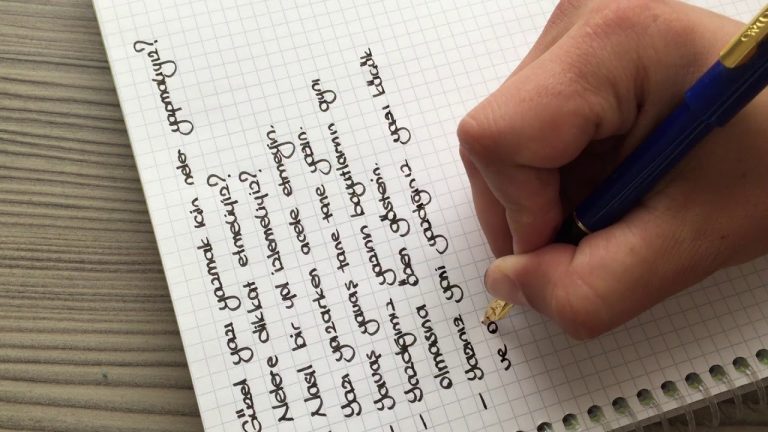 Güzel yazı yazmak için neler yapmalıyız?
Nelere dikkat etmeliyiz?
Nasıl bir yol izlemeliyiz?
Yazı yazarken acele etmeyin.
- Yavaş yavaş tane tane yazın.
- Yazdığımız yazının boyutlarının aynı
olmasına özen gösterin.
- Yazınız yani yazdığınız yazı küçük
ve o